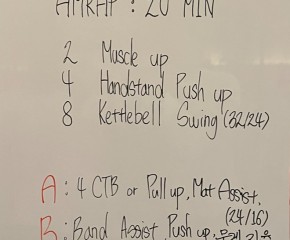 AMRAP : 20 MIN
2 Muscle up
4 Handstand Push up
8 Kettlebell Swing (32/24)
A : 4 CTB or Pull up, Mat Assist.
(24/16)
B : Band Assist, Push up,